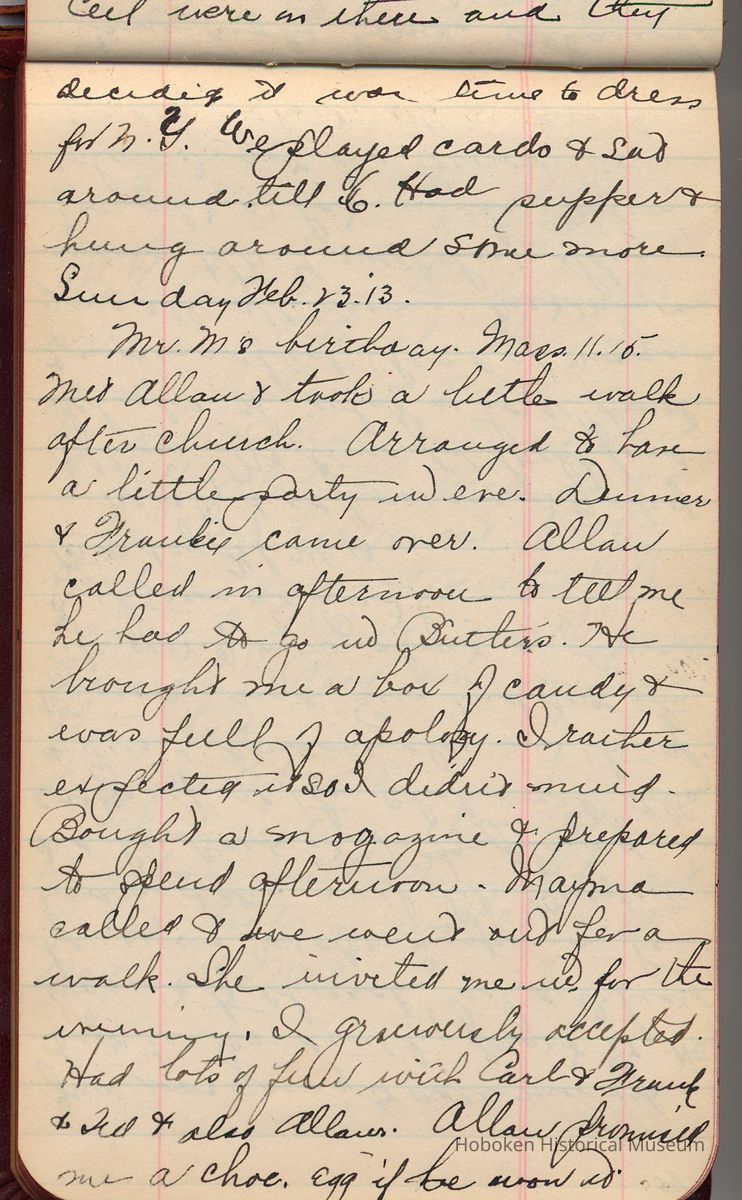 Ceil were in there and they
decided it was time to dress
for N.Y. We played cards & sat
around till 6. Had supper &
hung around some more.
Sunday Feb. 23.13.
Mr. M's birthday. Mass. 11.15.
Met Allan & took a little walk
after church. Arranged to have
a little party in eve. Dinner
& Frankie came over. Allan
called in afternoon to tell me
he had to go to Butler's. He
brought me a box of candy &
was full of apology. I rather
expected it so I didn't mind.
Bought a magazine & prepared
to spend afternoon. Mayma
called & we went out for a
walk. She invited me in for the
evening. I graciously accepted.
Had lots of fun with Carl & Frank
& Ted & also Allan. Allan promised
Hoboken Historical Museum
me a choc. egg if he won it.